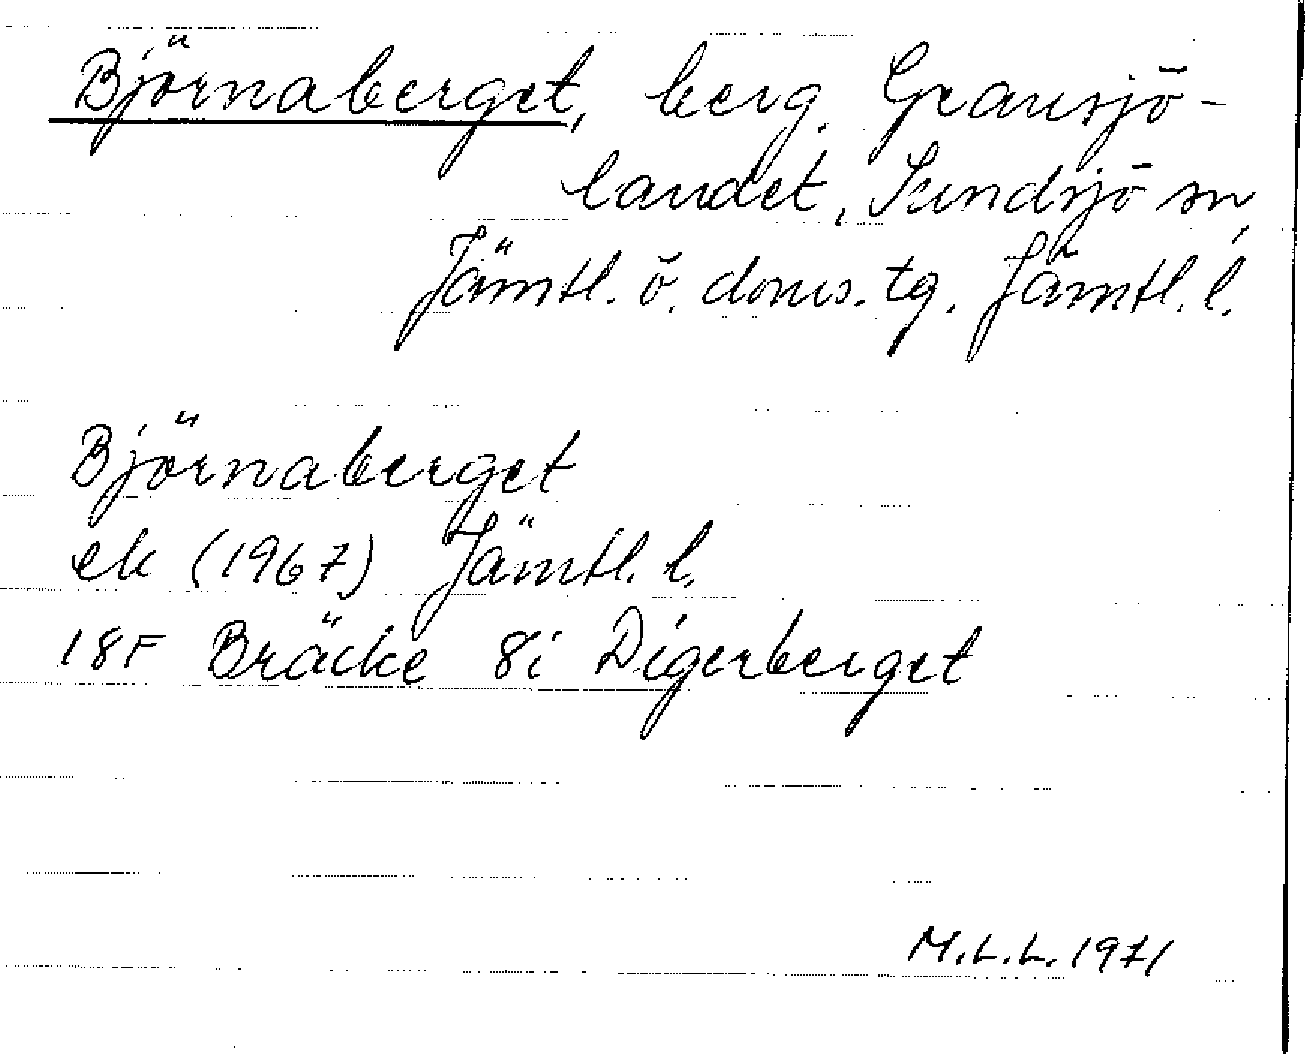 Björnaberget, berg. Gransjö-
landet, Sundsjö sn,
Jämtl. ö. doms. tg. Jämtl. l.
Björnaberget
ek (1967) Jämtl. l.
18F Bräcke 8i Digerberget
M.L.L. 1971